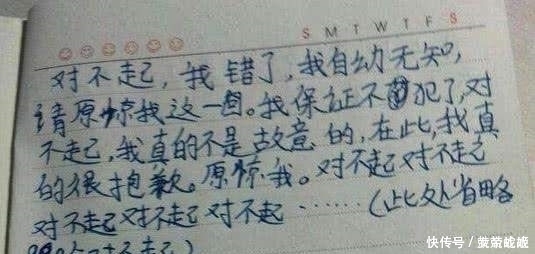 S M T W T F S
对不起，我错了，我自幼无知，
请原惊我这一回。我保证不犯了，对
不起，我真的不是故意的，在此，我真
的很抱歉。原惊我。对不起对不起
对不起对不起对不起……（此处省略
对不起）
快传号 /